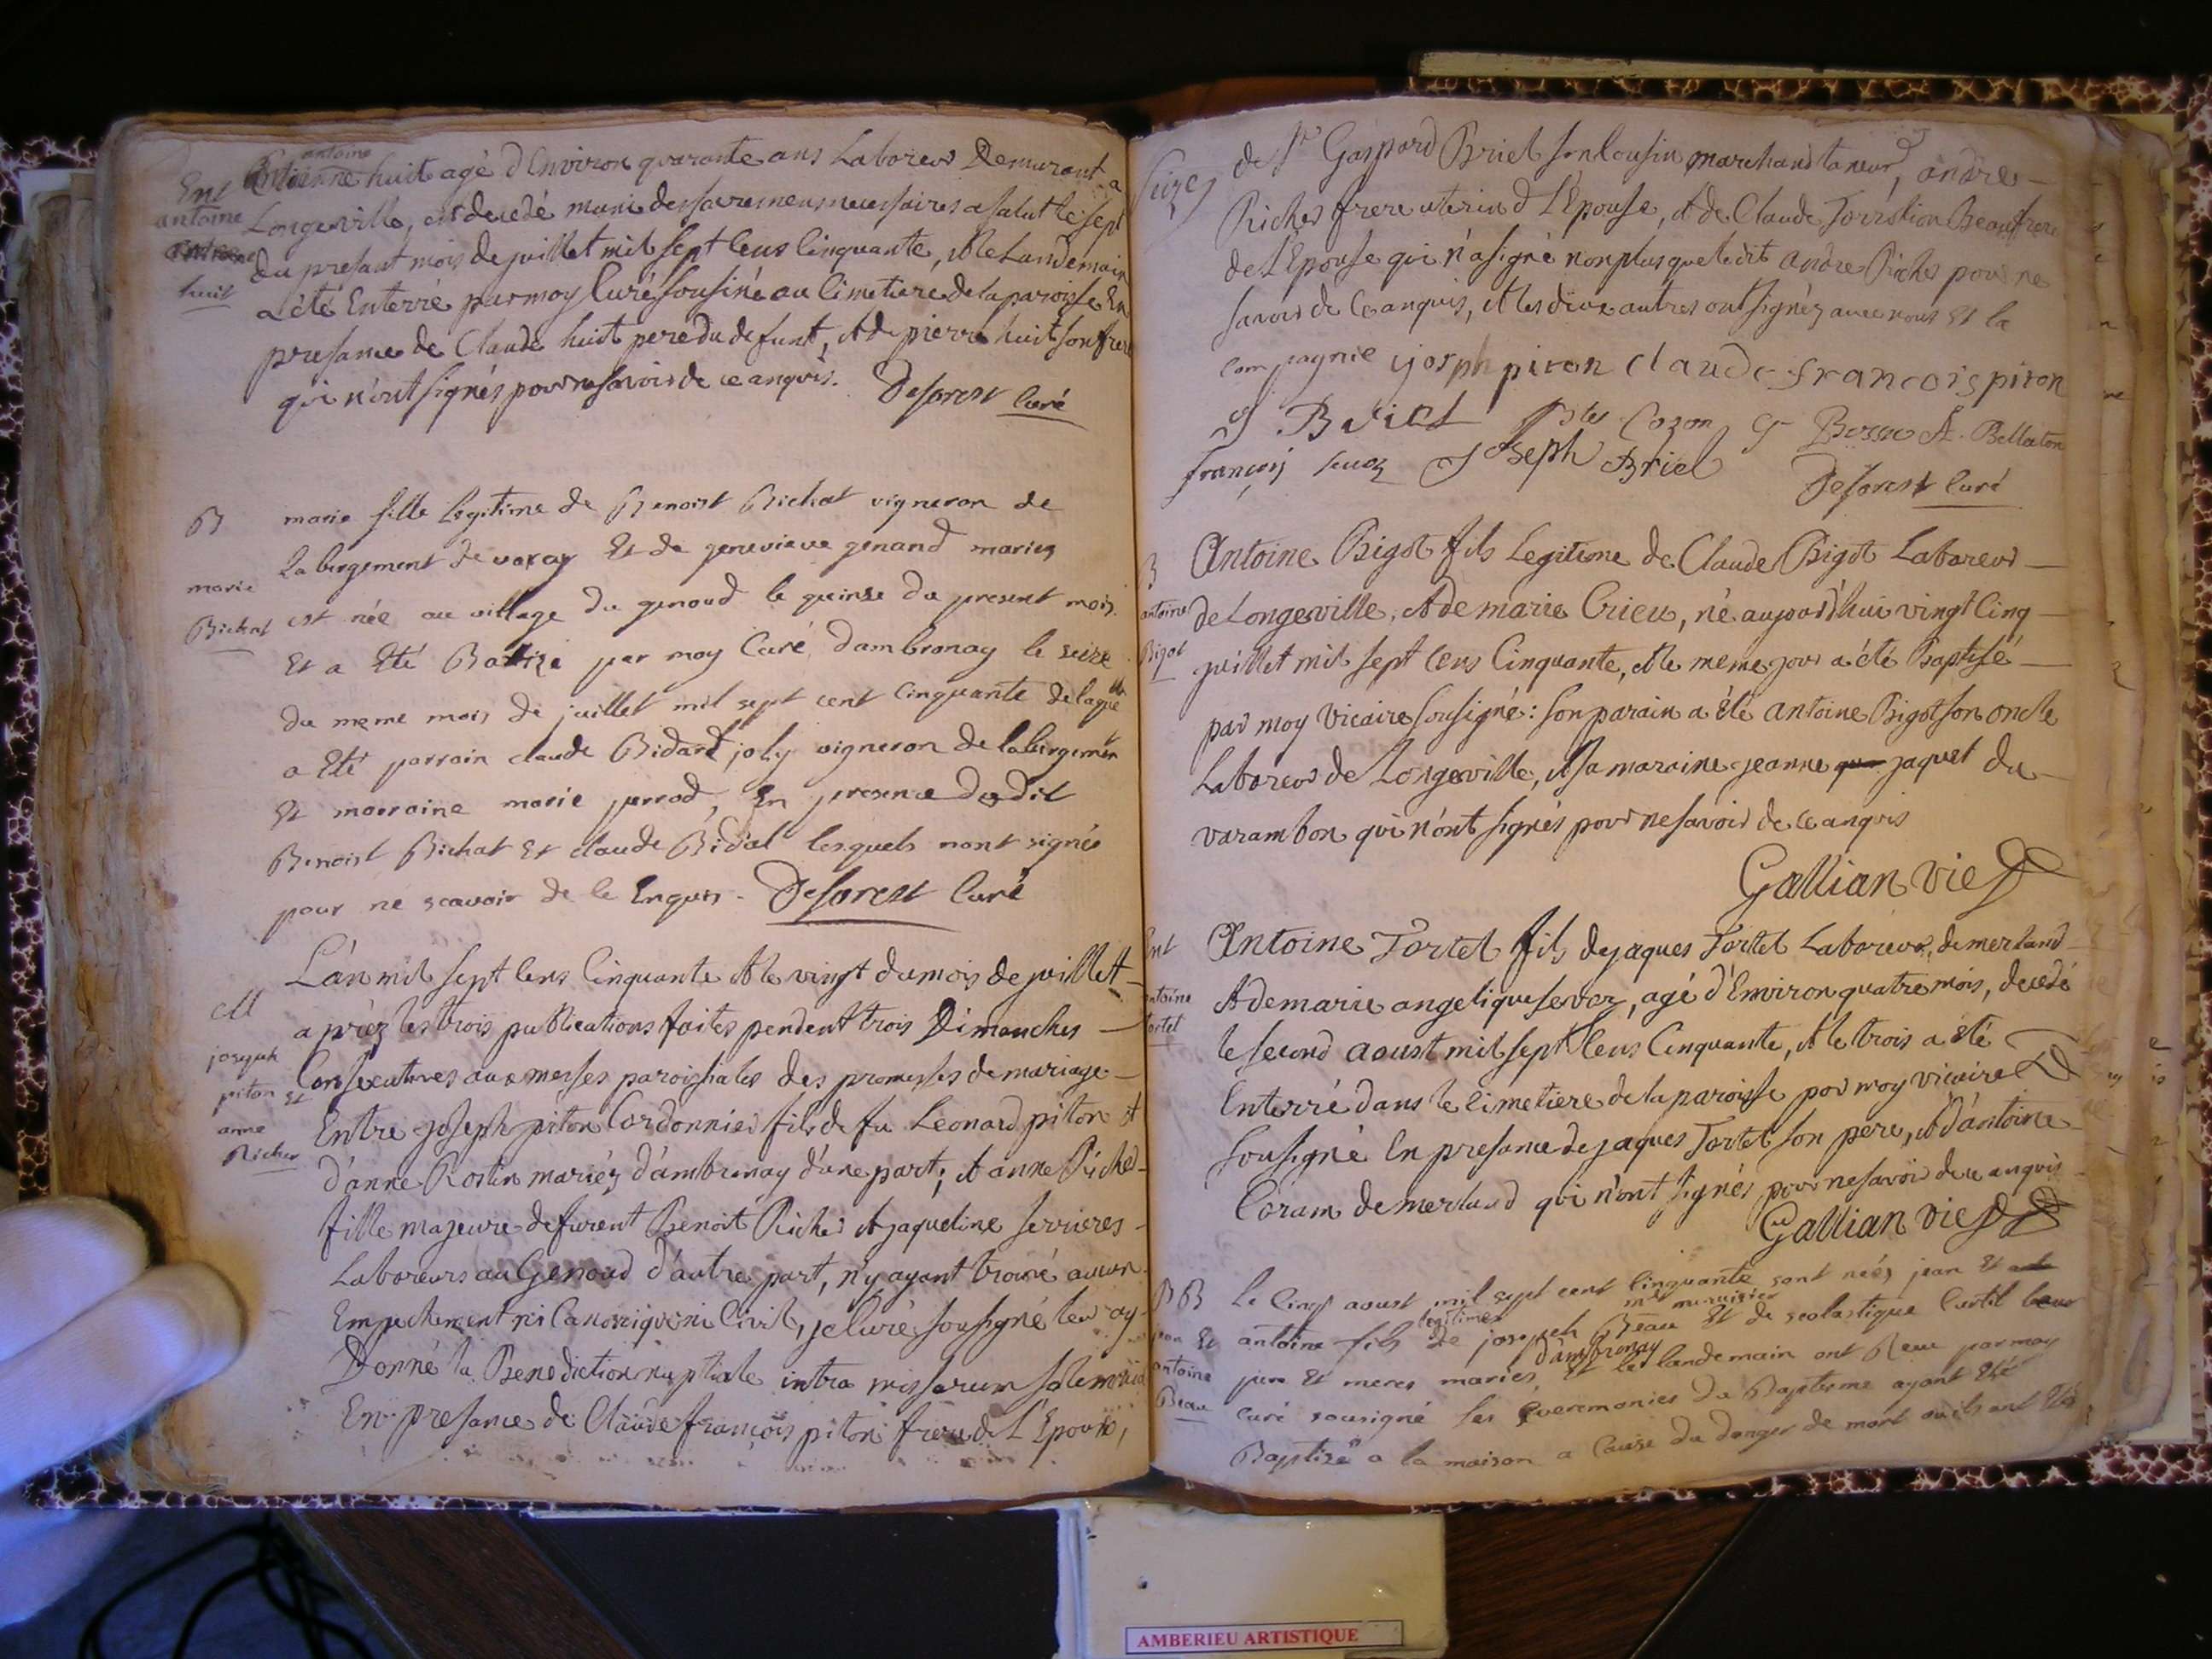 Ent
antoine
huit
antoine
Etienne huit agé d'Environ quarante ans Laboreur Demurant a
Longeville, est decedé muni des sacremens necessaires a salut le sept
du presant mois de juillet mil sept cens Cinquante, et le Landemain
a été Enterré par moy Curé sousiné au Cimetiere de la paroisse En
presance de Claude huit pere du defunt, et de pierre huit son frere
qui n'ont signés pour ne savoir de ce anquis. Deforest Curé
B
marie
Bichat
marie fille legitime de Benoist Bichat vigneron de
La bergement de varay Et de genevieve genand mariez
est née au village du genoud le quinse du present mois
Et a Eté Batizé par moy Curé dambronay le seize
du meme mois de juillet mil sept cent Cinquante de laquelle
a Eté parrain claude Bidard joly vigneron de labergemen
Et marraine marie perrod, En presence dudit
Benoist Bichat Et claude Bidal lesquels nont signés
pour ne scavoir de ce Enquis. Deforest Curé
M
joseph
piton Et
anne
Richer
L'an mil sept cens Cinquante et le vingt du mois de juillet
apréz les trois publications faites pendent trois Dimanches
Consecutives aux messes paroissiales des promesses de mariage
Entre joseph piton Cordonnier fils de fu Leonard piton et
d'anne Rostin mariéz d'ambronay d'une part; et anne Riches
fille majeure defurent Benoit Riches et jaqueline serrieres
Laboreurs au Genoud d'autre part, n'y ayant trouvé aucun
Empechement ni Canonique ni Civil, je Curé sousigné leur ay
Donné la Benediction nuptiale intra missarum solemnia
En presance de Claude françois piton frere de L'Epoux,
Seize
de Sr Gaspard Briel son Cousin marchand taneur, andre
Riches frere uterin d L'Epouse, et de Claude Torrstion Beaufrere
de L'Epouse qui n'a signé non plus que ledit andre Riches pour ne
savoir de ce anquis, et les deux autres ont signéz avec nous Et la
compagnie joseph piton claude francois piton
G Briel Cozon G Bosse A. Bellaton
françois Joseph Briel
Deforest Curé
B
antoine
Bigot
Antoine Bigot fils Legitime de Claude Bigot Laboreur
de Longeville, et de marie Crieu, né aujourd'hui vingt Cinq
juillet mil sept cens Cinquante, et le meme jour a été Baptisé
par moy Vicaire sousigné: son parain a été antoine Bigot son oncle
Laboreur de Longeville, et sa maraine jeanne jaquet du
varambon qui n'ont signés pour ne savoir de ce anquis
Gallian vic
Ent
antoine
tortet
Antoine Tortet fils de jaques Tortet Laboreur, de merland
et de marie angelique sevoz, agé d'Environ quatre mois, decedé
le second aoust mil sept cens Cinquante, et le trois a été
Enterré dans le cimetiere de la paroisse par moy vicaire
sousigné En presance de jaques Tortet son pere, et d'antoine
Coram de merland qui n'ont signés pour ne savoir de ce anquis
Gallian vic
BB
jean Et
antoine
Beau
Le Cinq aoust mil sept cent Cinquante sont néés jean Et
legitimes md menuisier
antoine fils de joseph Beau Et de scolastique Curtil leur
d'ambronay
pere Et meres mariés Et le landemain ont Receu par moy
curé sousigné les Ceremonies du Baptesme ayant Eté
Baptizés a la maison a Cause du danger de mort ou ils ont Etés
AMBERIEU ARTISTIQUE